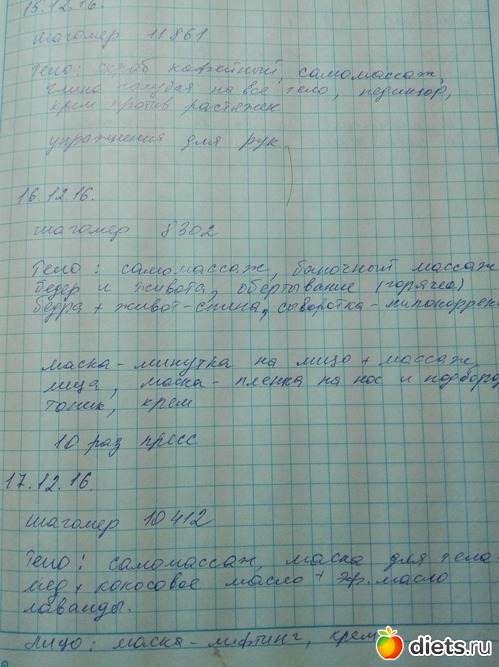 15.12.16.
шагомер 11861
Тело: скраб кофейный, самомассаж,
глина голубая на все тело, педикюр,
крем против растяжек
упражнения для рук.
16.12.16.
шагомер 8302
Тело: самомассаж, баночный массаж
бедер и живота, обертывание (горячее)
бедра + живот-спина, сыворотка-липокоррек
маска-минутка на лицо + массаж
лица, маска-пленка на нос и подбород
тоник, крем
10 раз пресс
17.12.16.
шагомер 10412
Тело: самомассаж, маска для тела
мед + кокосовое масло + эф. масло
лаванды.
Лицо: маска-лифтинг, крем
diets.ru